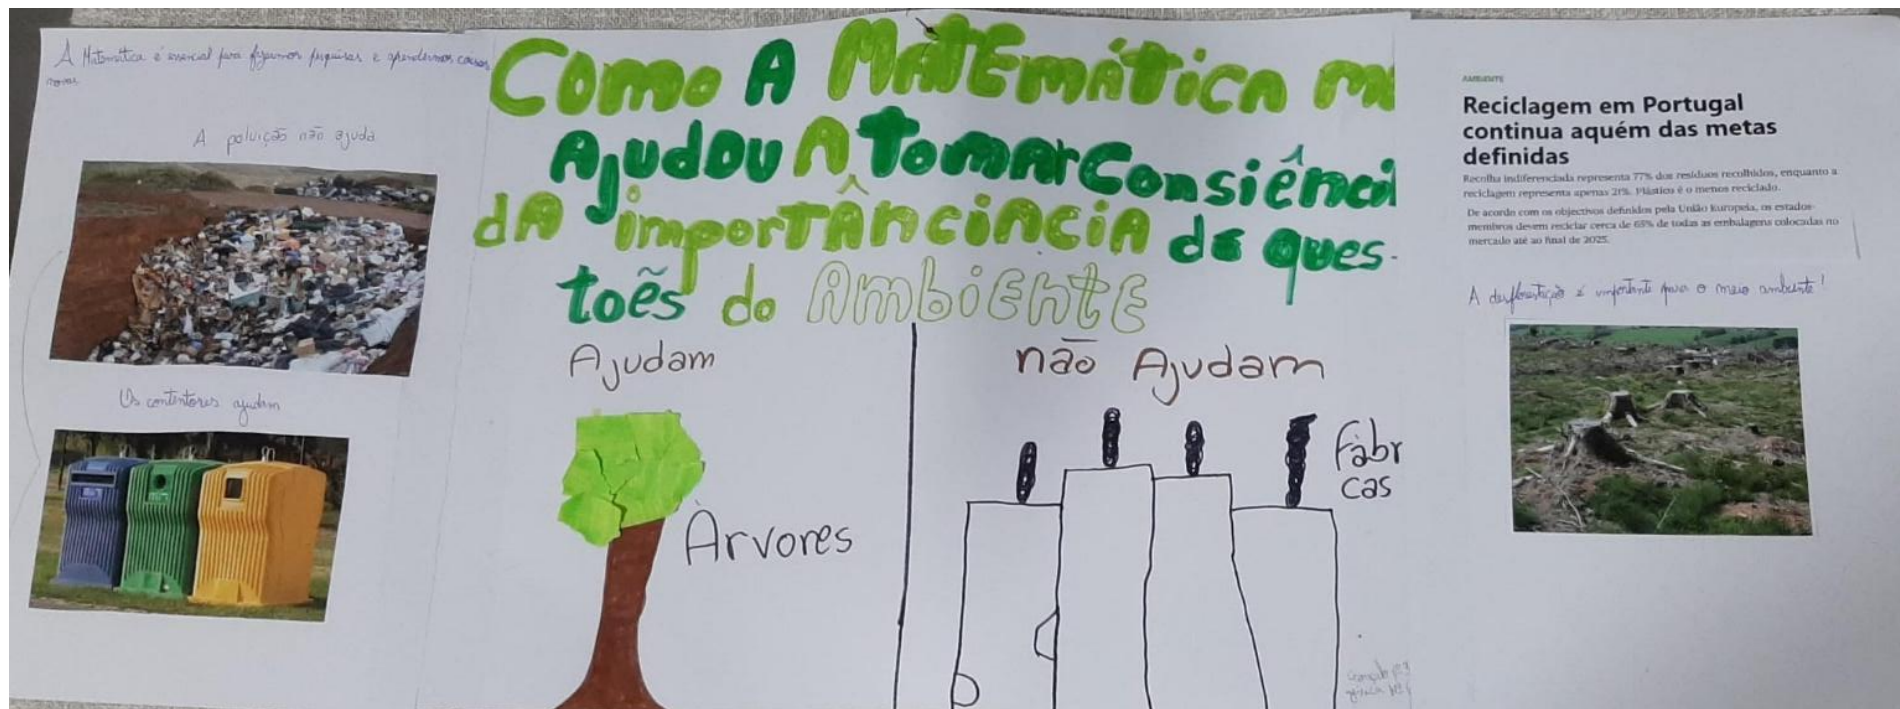 A Matemática é essencial para fazermos pesquisas e aprendermos coisas
novas
A poluição não ajuda
Os contentores ajudam
Como A MATEmática m
AjudoU A TomAr Consiênci
dA importÂnciAnciA de ques-
toẽs do AmbiEnTE
Ajudam
não Ajudam
Àrvores
Fàbr
cas
AMBIENTE
Reciclagem em Portugal
continua aquém das metas
definidas
Recolha indiferenciada representa 77% dos resíduos recolhidos, enquanto a
reciclagem representa apenas 21%. Plástico é o menos reciclado.
De acordo com os objectivos definidos pela União Europeia, os estados-
membros devem reciclar cerca de 65% de todas as embalagens colocadas no
mercado até ao final de 2025.
A desflorestação é importante para o meio ambiente!